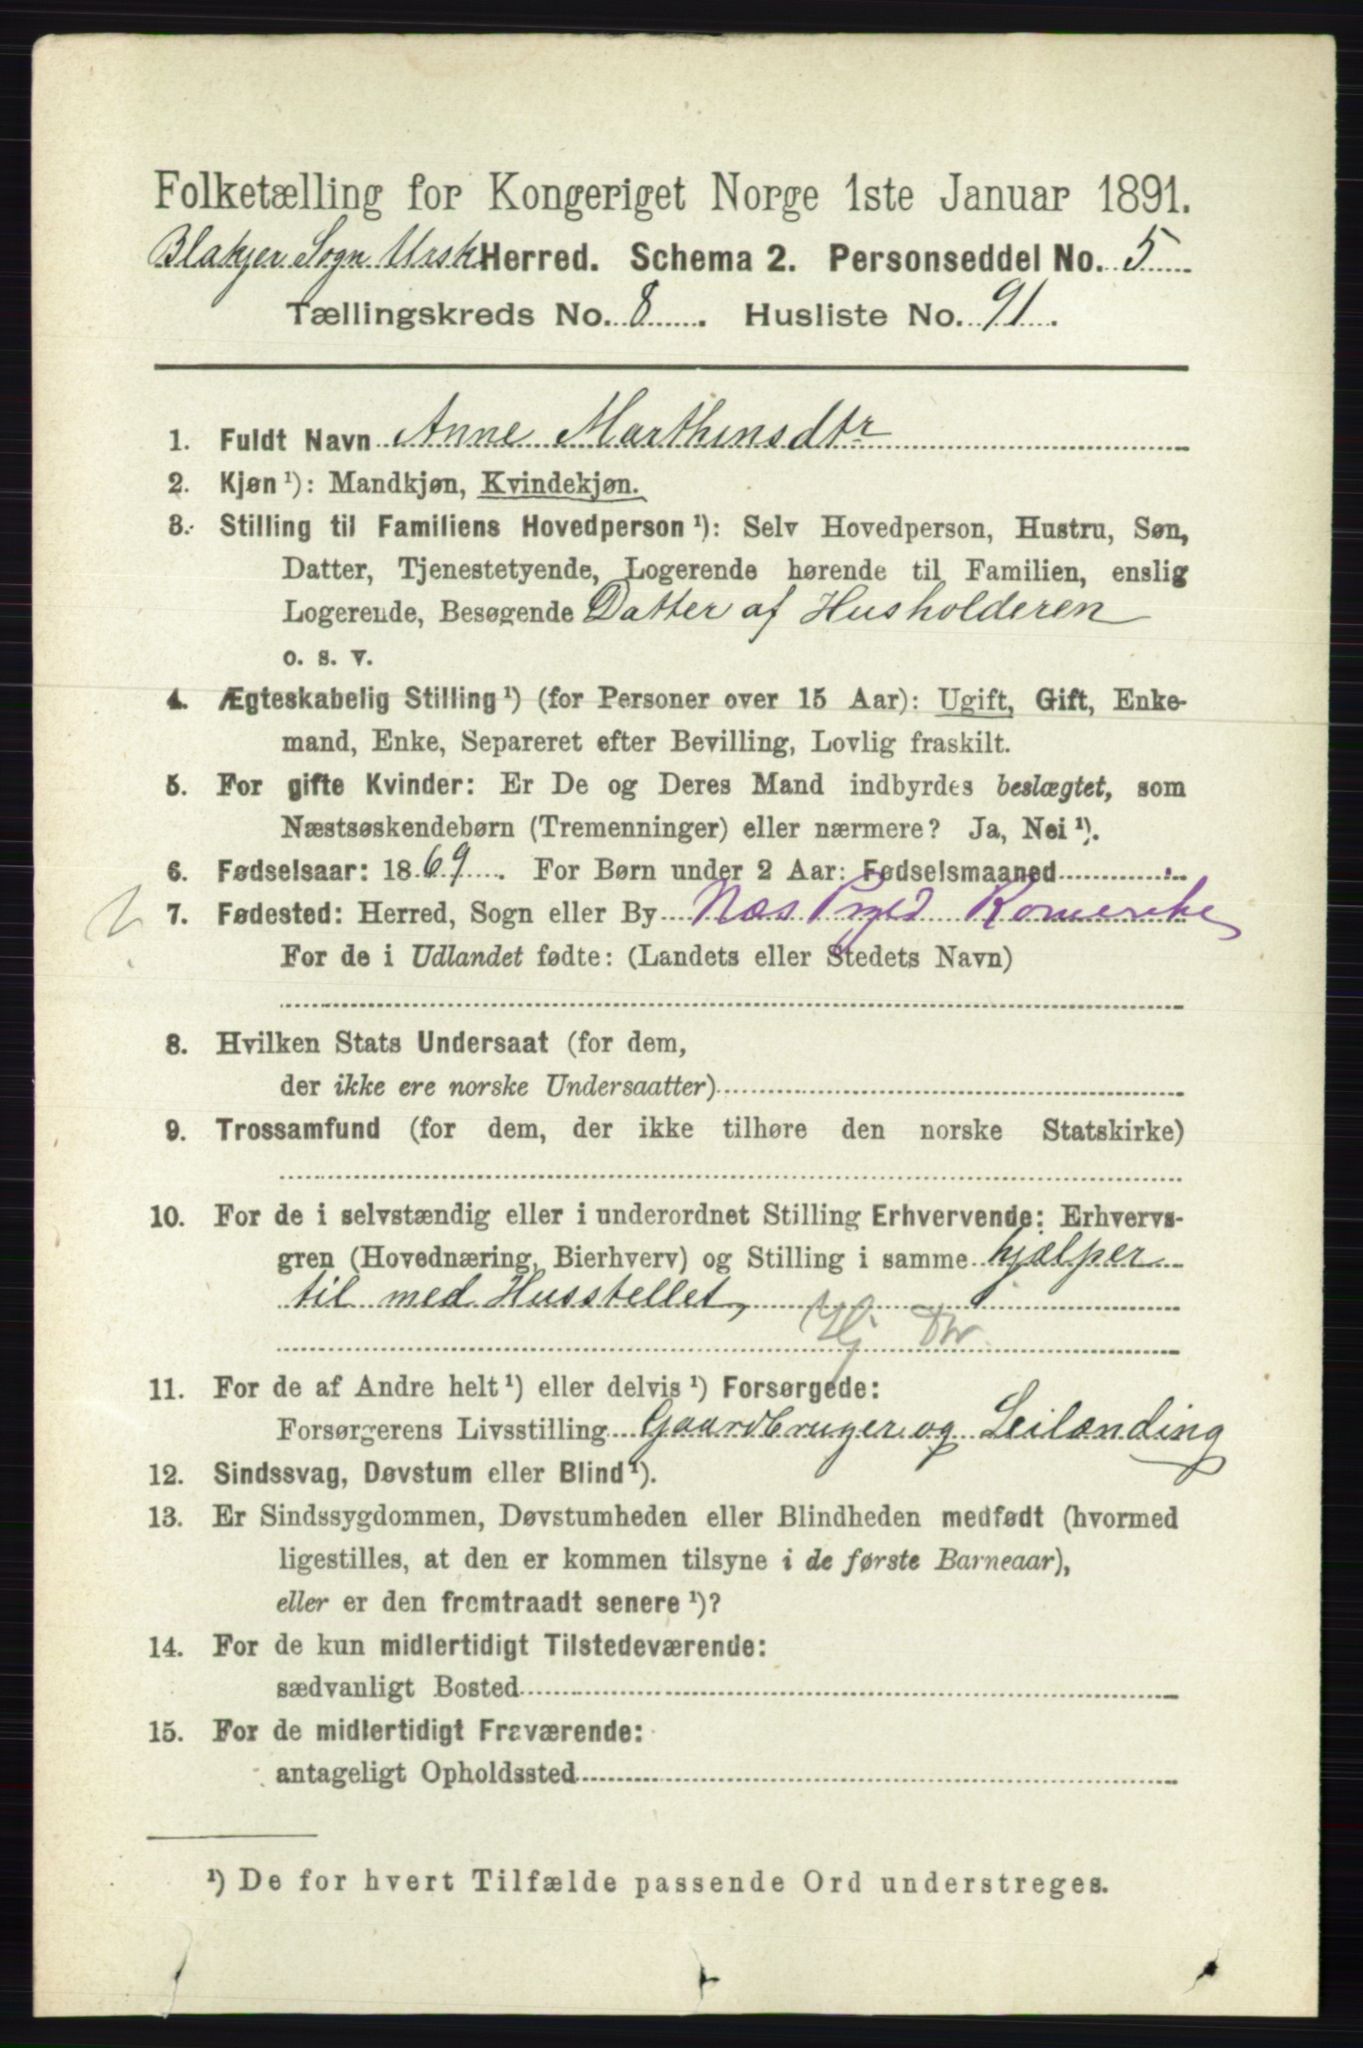 Folketælling for Kongeriget Norge 1ste Januar 1891.
Blakjer Sogn Ursk Herred. Schema 2. Personseddel No. 5
Tællingskreds No. 8. Husliste No. 91.
1. Fuldt Navn Anne Marthinsdtr
2. Kjøn ¹): Mandkjøn, Kvindekjøn.
3. Stilling til Familiens Hovedperson ¹): Selv Hovedperson, Hustru, Søn,
Datter, Tjenestetyende, Logerende hørende til Familien, enslig
Logerende, Besøgende Datter af Husholderen
o. s. v.
4. Ægteskabelig Stilling ¹) (for Personer over 15 Aar): Ugift, Gift, Enke-
mand, Enke, Separeret efter Bevilling, Lovlig fraskilt.
5. For gifte Kvinder: Er De og Deres Mand indbyrdes beslægtet, som
Næstsøskendebørn (Tremenninger) eller nærmere? Ja, Nei ¹).
6. Fødselsaar: 1869. For Børn under 2 Aar: Fødselsmaaned
7. Fødested: Herred, Sogn eller By Næs Prgjd Romerike
For de i Udlandet fødte: (Landets eller Stedets Navn)
8. Hvilken Stats Undersaat (for dem,
der ikke ere norske Undersaatter)
9. Trossamfund (for dem, der ikke tilhøre den norske Statskirke)
10. For de i selvstændig eller i underordnet Stilling Erhvervende: Erhvervs-
gren (Hovednæring, Bierhverv) og Stilling i samme hjælper
til med Husstellet,
Hj
11. For de af Andre helt ¹) eller delvis ¹) Forsørgede:
Forsørgerens Livsstilling Gaardbruger og Leilænding
12. Sindssvag, Døvstum eller Blind ¹).
13. Er Sindssygdommen, Døvstumheden eller Blindheden medfødt (hvormed
ligestilles, at den er kommen tilsyne i de første Barneaar),
eller er den fremtraadt senere ¹)?
14. For de kun midlertidigt Tilstedeværende:
sædvanligt Bosted
15. For de midlertidigt Fraværende:
antageligt Opholdssted
¹) De for hvert Tilfælde passende Ord understreges.